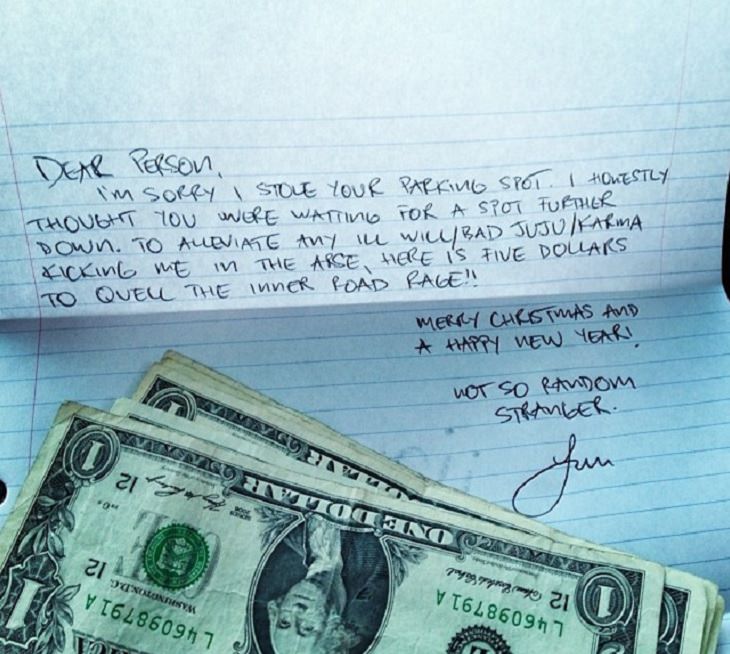 DEAR PERSON,
I'M SORRY I STOLE YOUR PARKING SPOT. I HONESTLY
THOUGHT YOU WERE WAITING FOR A SPOT FURTHER
DOWN. TO ALLEVIATE ANY ILL WILL/BAD JUJU/KARMA
KICKING ME IN THE ARSE, HERE IS FIVE DOLLARS
TO QUELL THE INNER ROAD RAGE!!
MERRY CHRISTMAS AND
A HAPPY NEW YEAR!
NOT SO RANDOM
STRANGER.
ONE DOLLAR
1
12
WASHINGTON, D.C.
L46098791A
12
1
L46098791A
12
1